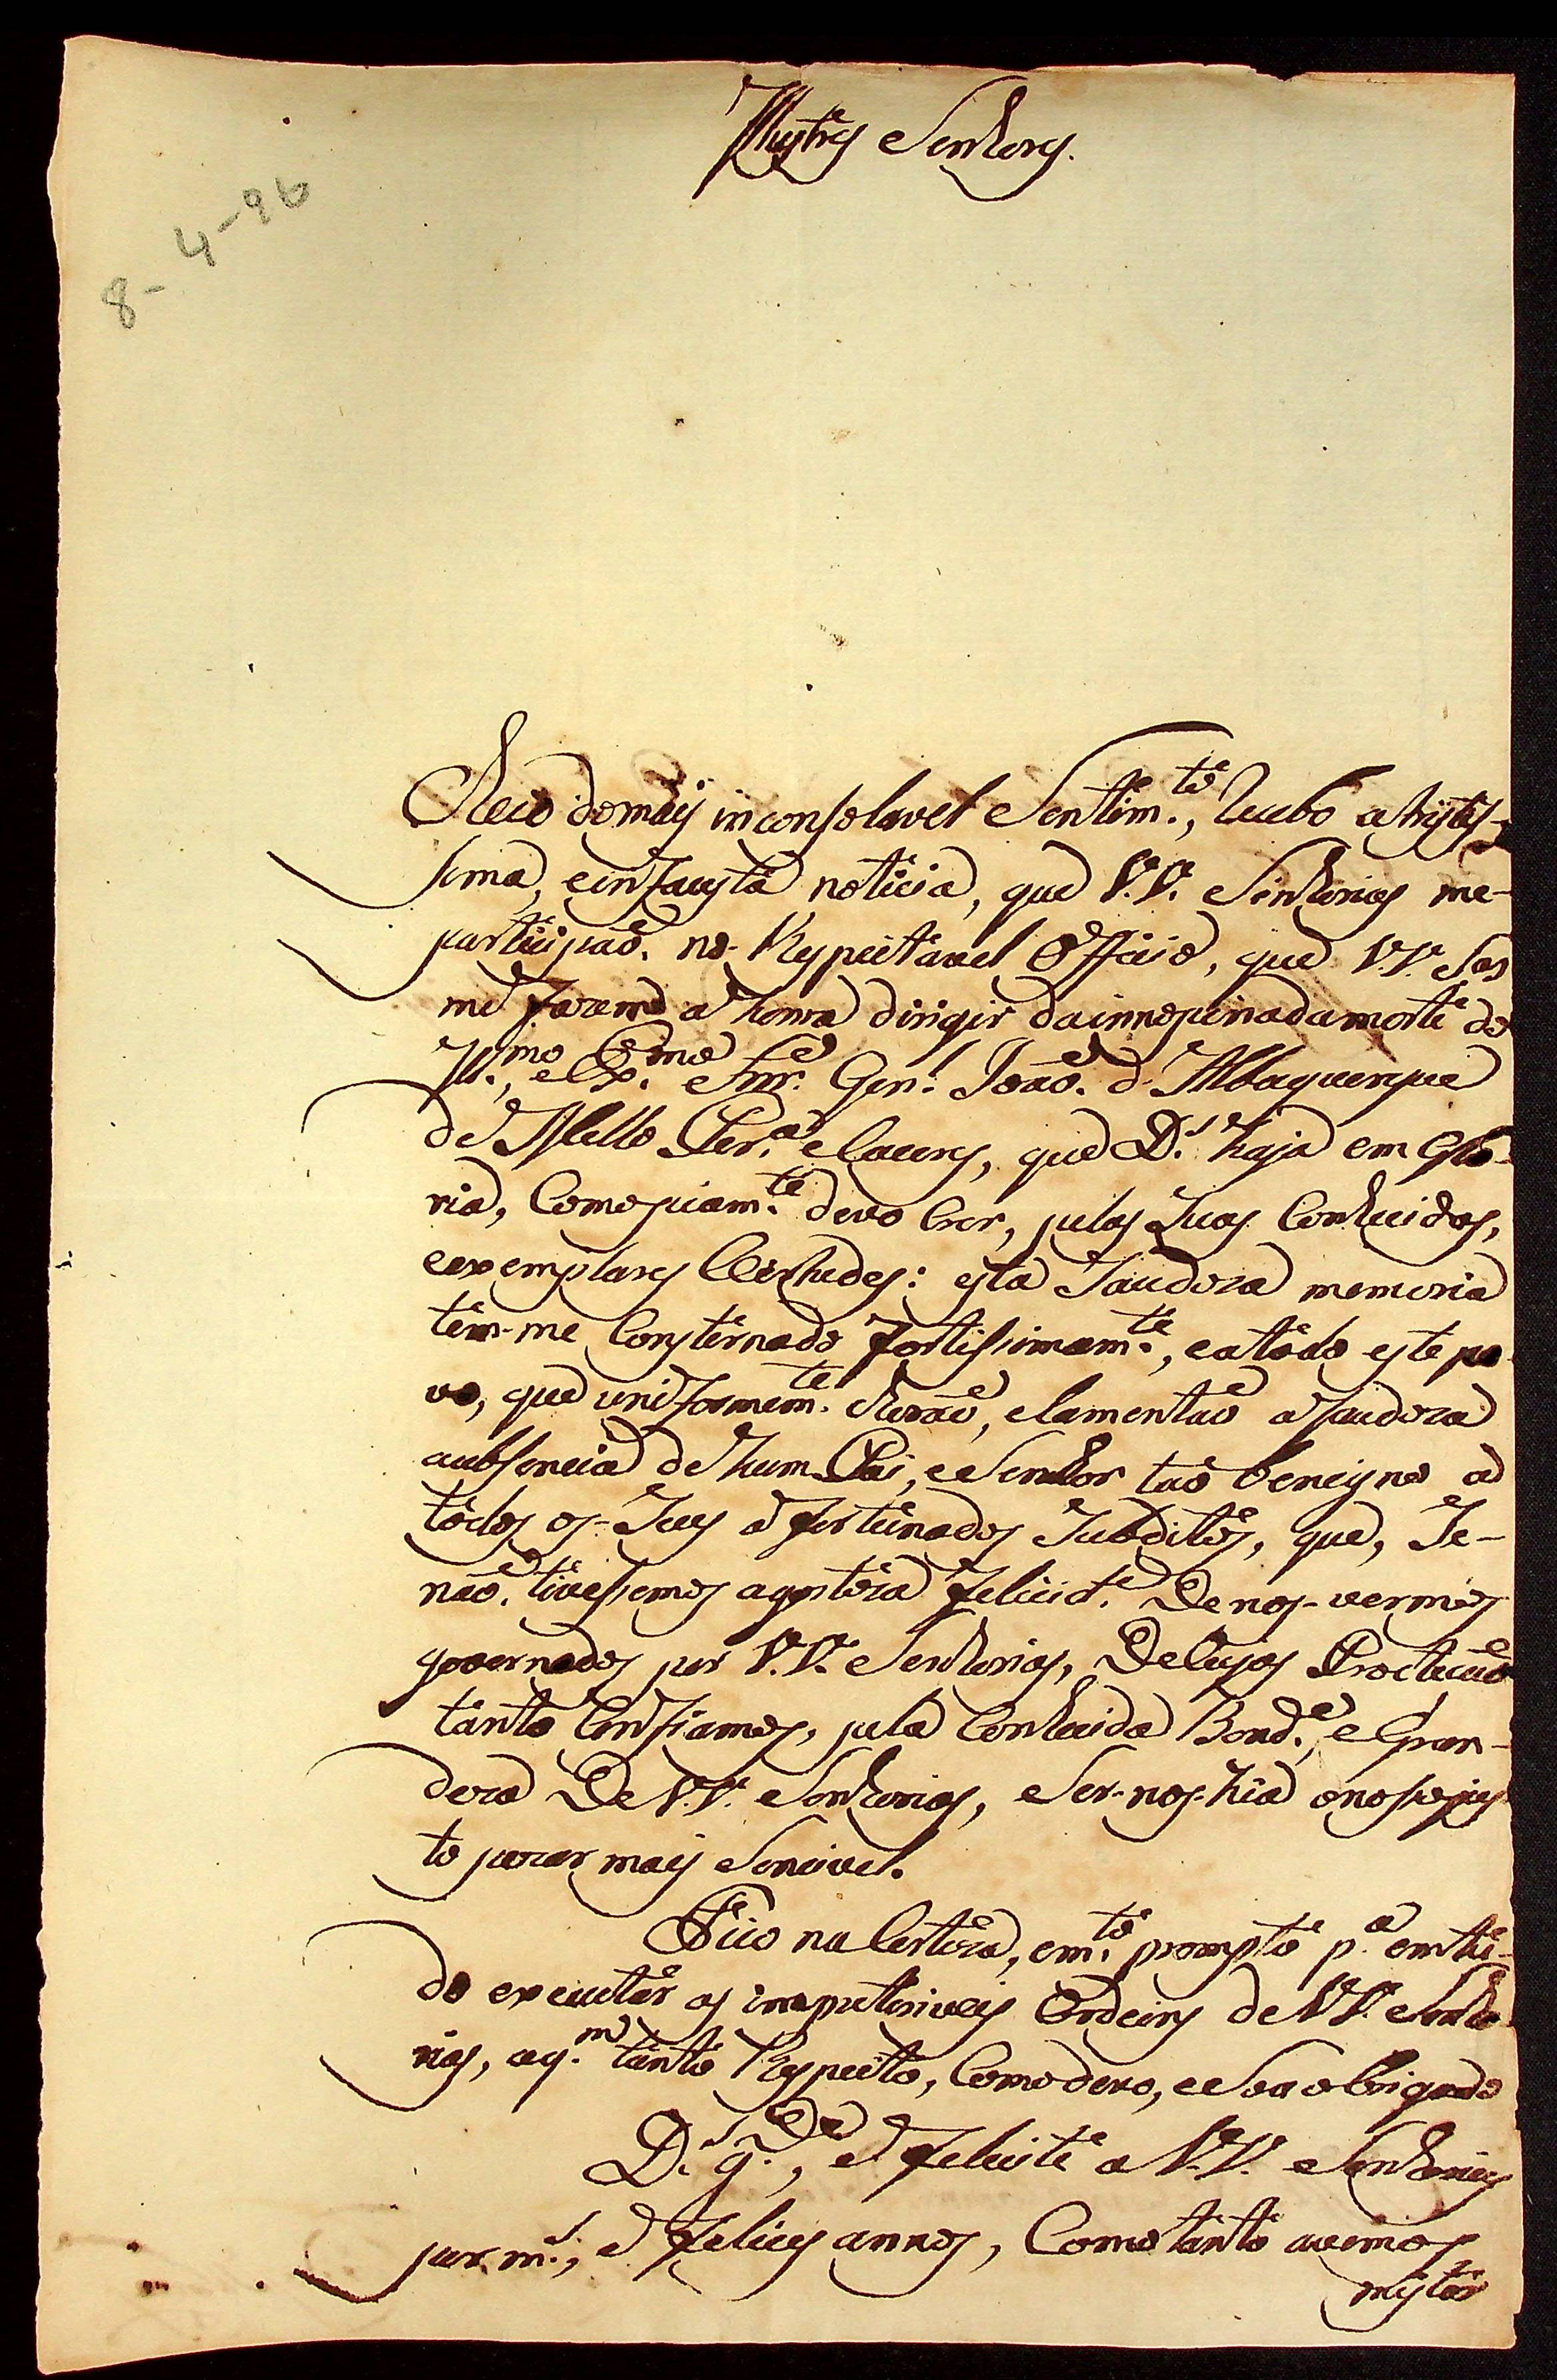 Illustres Senhores.
8-4-96
Cheio do mais inconsolavel Sentim.to, recebo a tristis-
sima, e infausta noticia, que V.V. Senhorias me-
participaõ. no-Respeitavel Officio, que V.V. Sas
me fazem a honra dirigir da innopinada morte do
Ill.mo, e Ex.mo Snr. Gen.l Joaõ. d'Albuquerque
de Mello Per.a e Caceres, que D.s haja em Glo-
ria, Como piam.te devo Crer, pelas Suas Conhecidas,
e exemplares Virtudes: esta Saudoza memoria
tem-me Consternado fortissimam.te, e a todo este po-
vo, que uniformem.te choraõ, e lamentaõ a Saudoza
aubsencia de hum Pai, e Senhor taõ benigno a
todos os-Seus afortunados Subditos, que, Se-
naõ. tivessemos a gostoza felicid.e De nos-vermos
governados por V.V. Senhorias, De Cujas Protecçaõ
tanto Confiamos, pela Conhecida Bond.e, e Gran-
deza De V.V. Senhorias, Ser-nos-hia o nosso jus
to pezar mais Sencivel.
Fico na Certeza, em.to prompto p.a em tu-
do executar as impreteriveis Ordeins de V.V. Senho
rias, aq.m tanto Respeito, Como devo, e Sou obrigado
D.s g.de, e felicite a V.V. Senhorias
por m.s, e felices annos, Como tanto avemos
mister